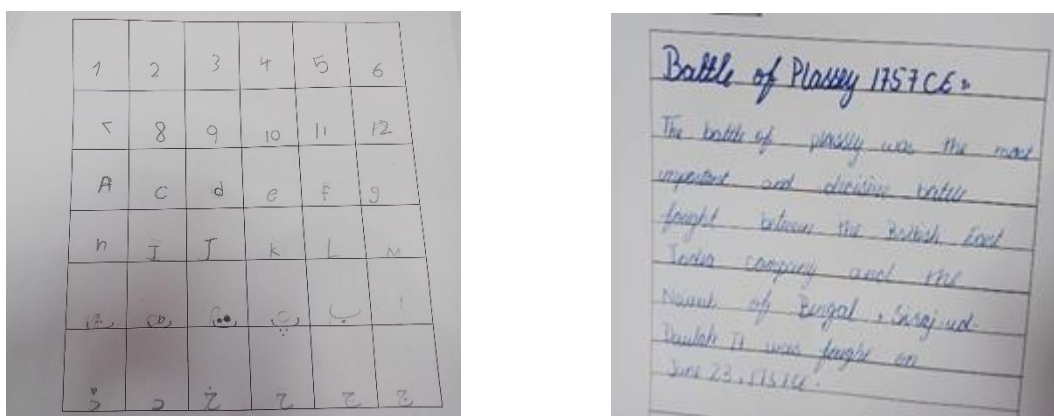 1 2 3 4 5 6
7 8 9 10 11 12
A c d e f g
h I J k L M
پ ب ا
Battle of Plassey 1757 CE:
The battle of plassey was the most
important and decisive battle
fought between the British East
India company and the
Nawab of Bengal, Siraj-ud-
Daulah It was fought on
June 23, 1757 CE.